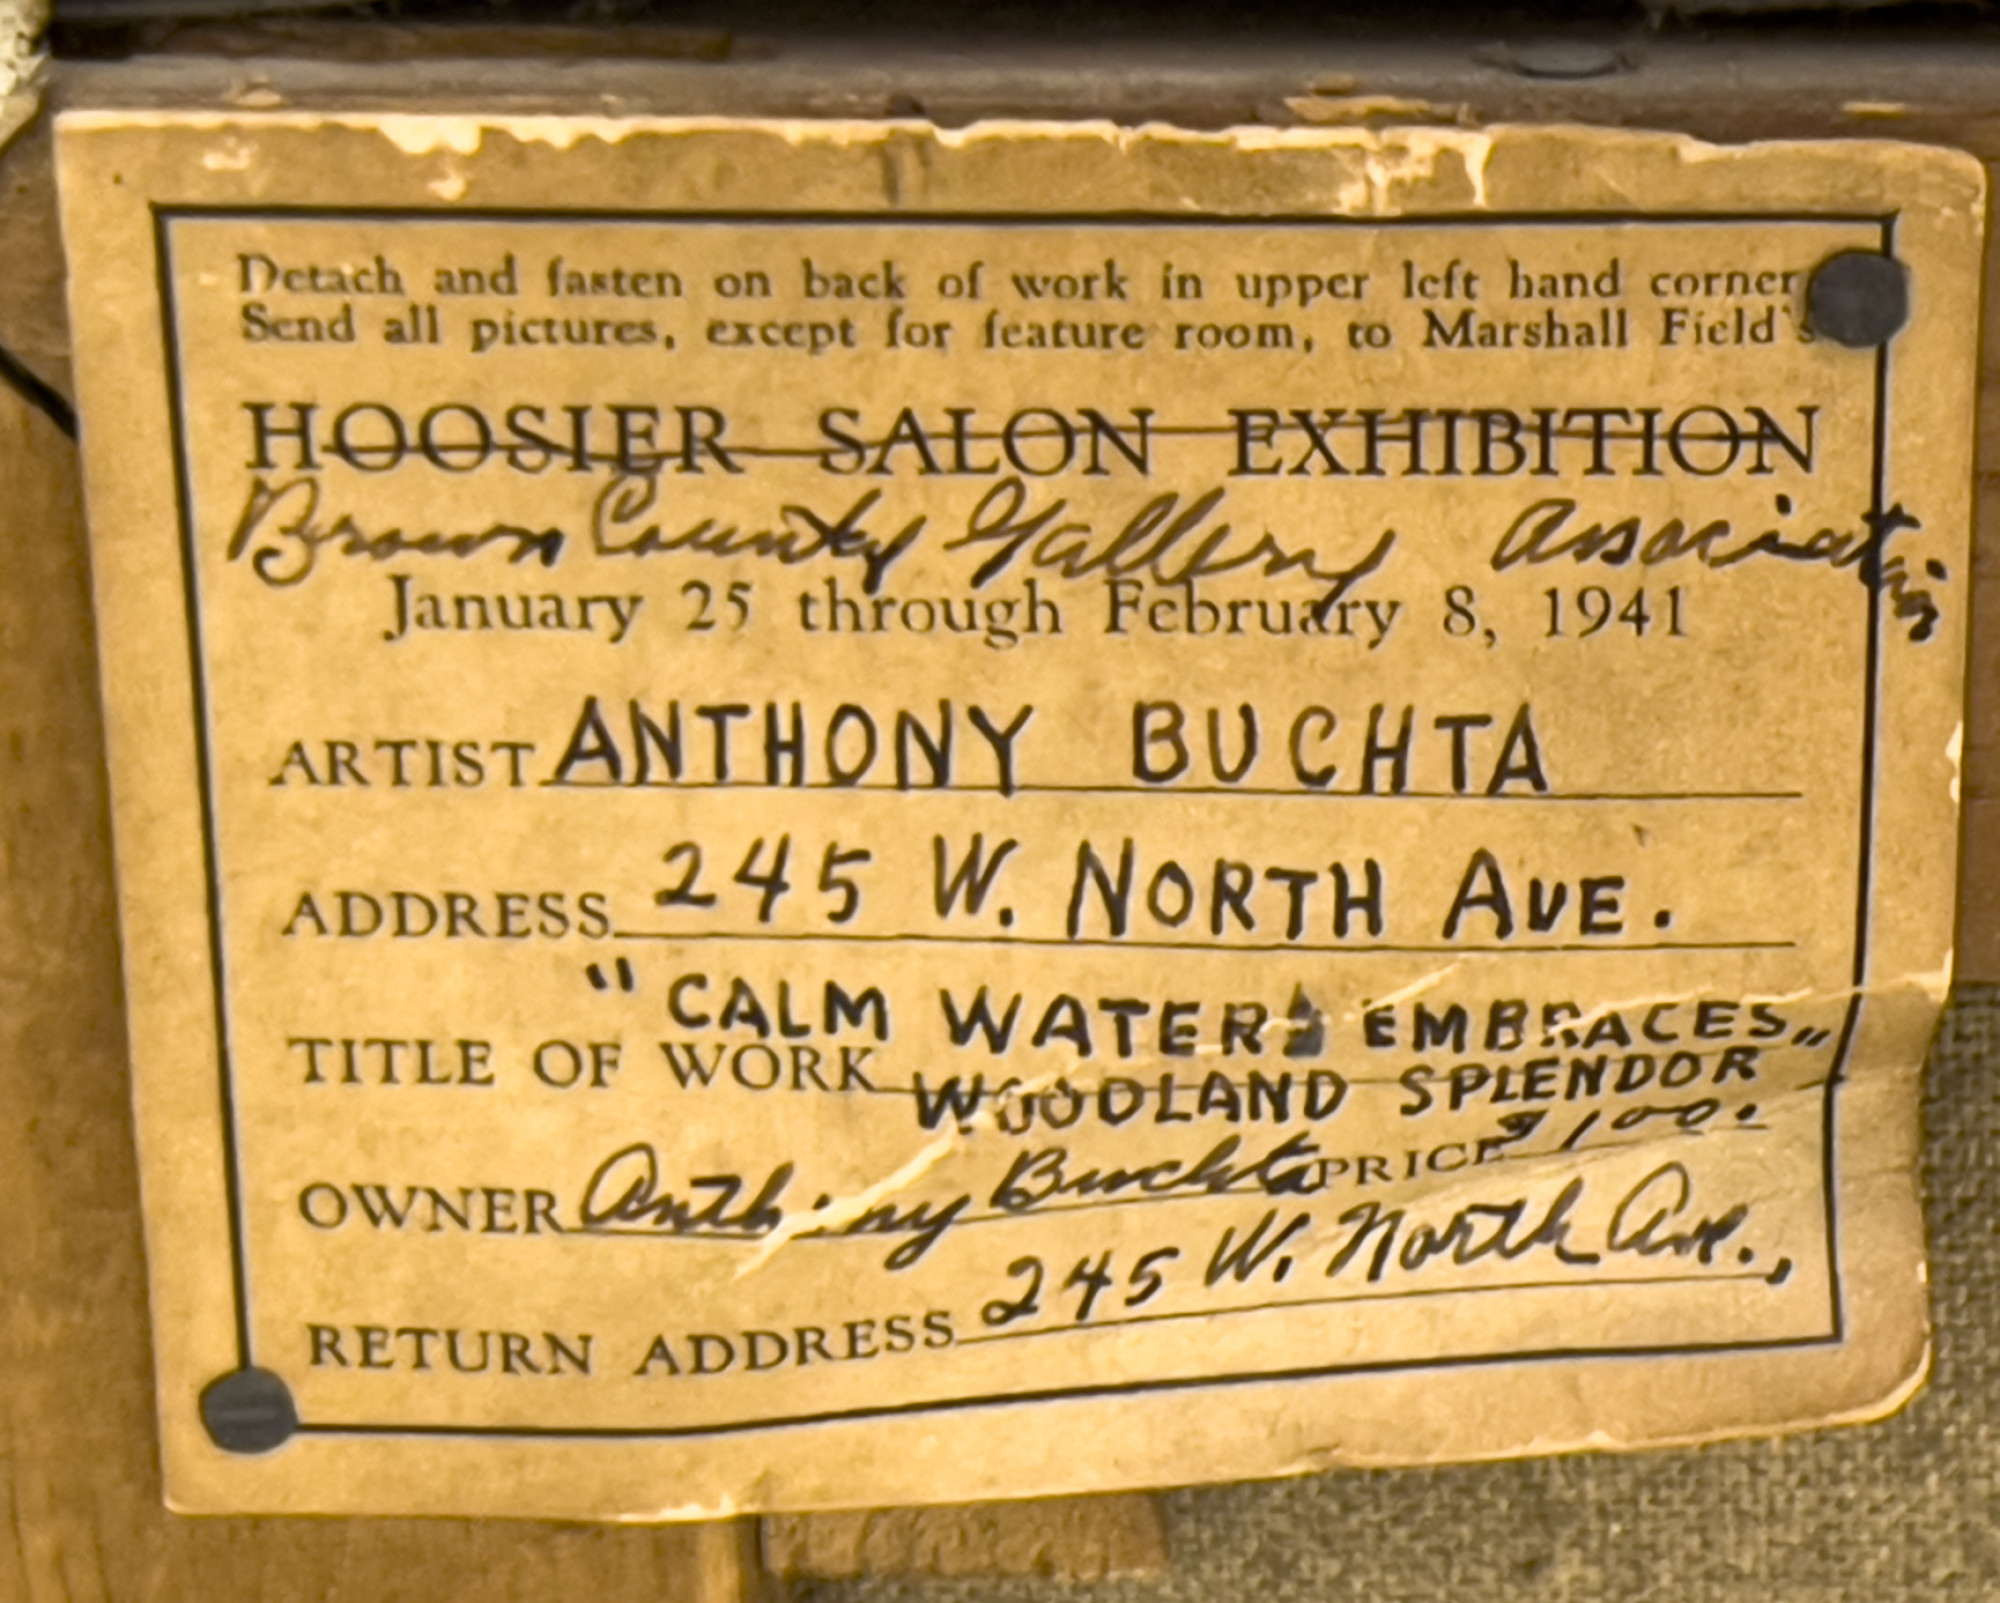 Detach and fasten on back of work in upper left hand corner
Send all pictures, except for feature room, to Marshall Field's
HOOSIER SALON EXHIBITION
Brown County Gallery Association
January 25 through February 8, 1941
ARTIST ANTHONY BUCHTA
ADDRESS 245 W. NORTH AVE.
"CALM WATER EMBRACES
TITLE OF WORK WOODLAND SPLENDOR"
OWNER Anthony Buchta PRICE $100.
RETURN ADDRESS 245 W. North Ave.,